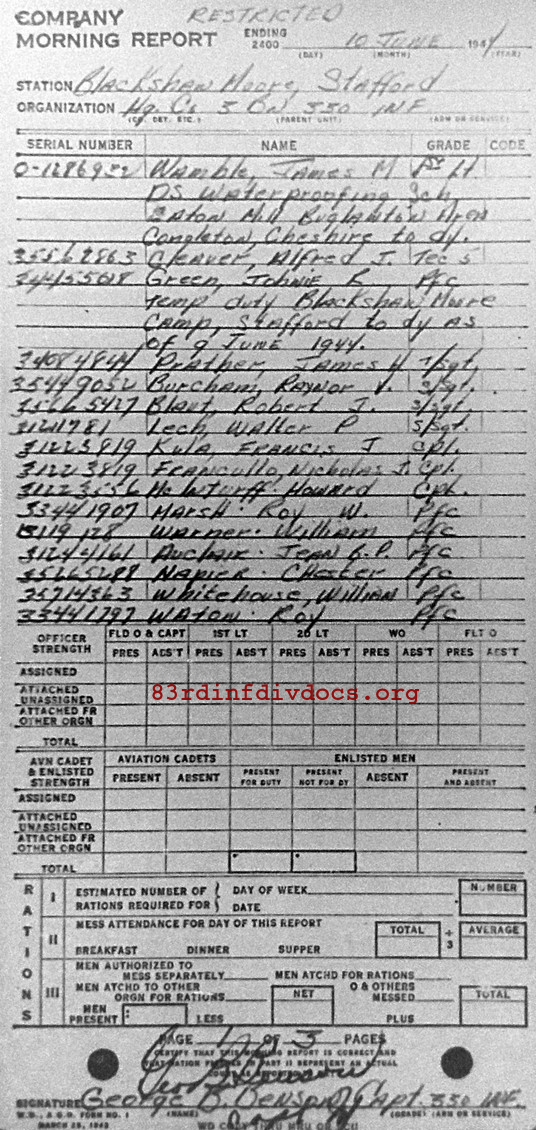 COMPANY RESTRICTED
MORNING REPORT ENDING 2400 10 JUNE 1944
(DAY) (MONTH) (YEAR)
STATION Blackshaw Moore, Stafford
ORGANIZATION Hq. Co 3 Bn 330 INF
(CO, DET, ETC.) (PARENT UNIT) (ARM OR SERVICE)
SERIAL NUMBER NAME GRADE CODE
O-1286932 Wamble, James M 1st Lt
DS Waterproofing Sch
Eaton Mill Buglawton Area
Congleton, Cheshire to dy.
35562863 Cleaver, Alfred J. Tec 5
34455608 Green, Johnie R Pfc
Temp duty Blackshaw Moore
Camp, Stafford to dy as
of 9 June 1944.
Prather, James H T/Sgt.
35449052 Burcham, Raynor V. S/Sgt.
35665427 Blaut, Robert J. S/Sgt.
Lech, Walter P S/Sgt.
31223819 Kula, Francis J Cpl.
31223819 Francullo, Nicholas J. Cpl.
31223556 McInturff. Howard Cpl.
33441907 Marsh. Roy W. Pfc
Warner. William Pfc
31244161 Auclair. Jean B.P. Pfc
35265288 Napier. Chester Pfc
35714363 Whitehouse, William Pfc
33441797 Waton. Roy Pfc
OFFICER STRENGTH FLD O & CAPT 1ST LT 2D LT WO FLT O
PRES ABS'T PRES ABS'T PRES ABS'T PRES ABS'T PRES ABS'T
ASSIGNED
ATTACHED UNASSIGNED
83rdinfdivdocs.org
ATTACHED FR OTHER ORGN
TOTAL
AVN CADET & ENLISTED STRENGTH AVIATION CADETS ENLISTED MEN
PRESENT ABSENT PRESENT FOR DUTY PRESENT NOT FOR DY ABSENT PRESENT AND ABSENT
ASSIGNED
ATTACHED UNASSIGNED
ATTACHED FR OTHER ORGN
TOTAL
RATIONS
I ESTIMATED NUMBER OF RATIONS REQUIRED FOR { DAY OF WEEK NUMBER
DATE
II MESS ATTENDANCE FOR DAY OF THIS REPORT TOTAL ÷ 3 AVERAGE
BREAKFAST DINNER SUPPER
III MEN AUTHORIZED TO MESS SEPARATELY MEN ATCHD FOR RATIONS
MEN ATCHD TO OTHER ORGN FOR RATIONS NET O & OTHERS MESSED TOTAL
MEN PRESENT : LESS PLUS
PAGE 1 OF 3 PAGES
CERTIFY THAT THIS MORNING REPORT IS CORRECT AND
SIGNATURE George B. Benson Capt. 330 INF.
W.D., A.G.O. FORM NO. 1 (NAME) (GRADE) (ARM OR SERVICE)
MARCH 25, 1943